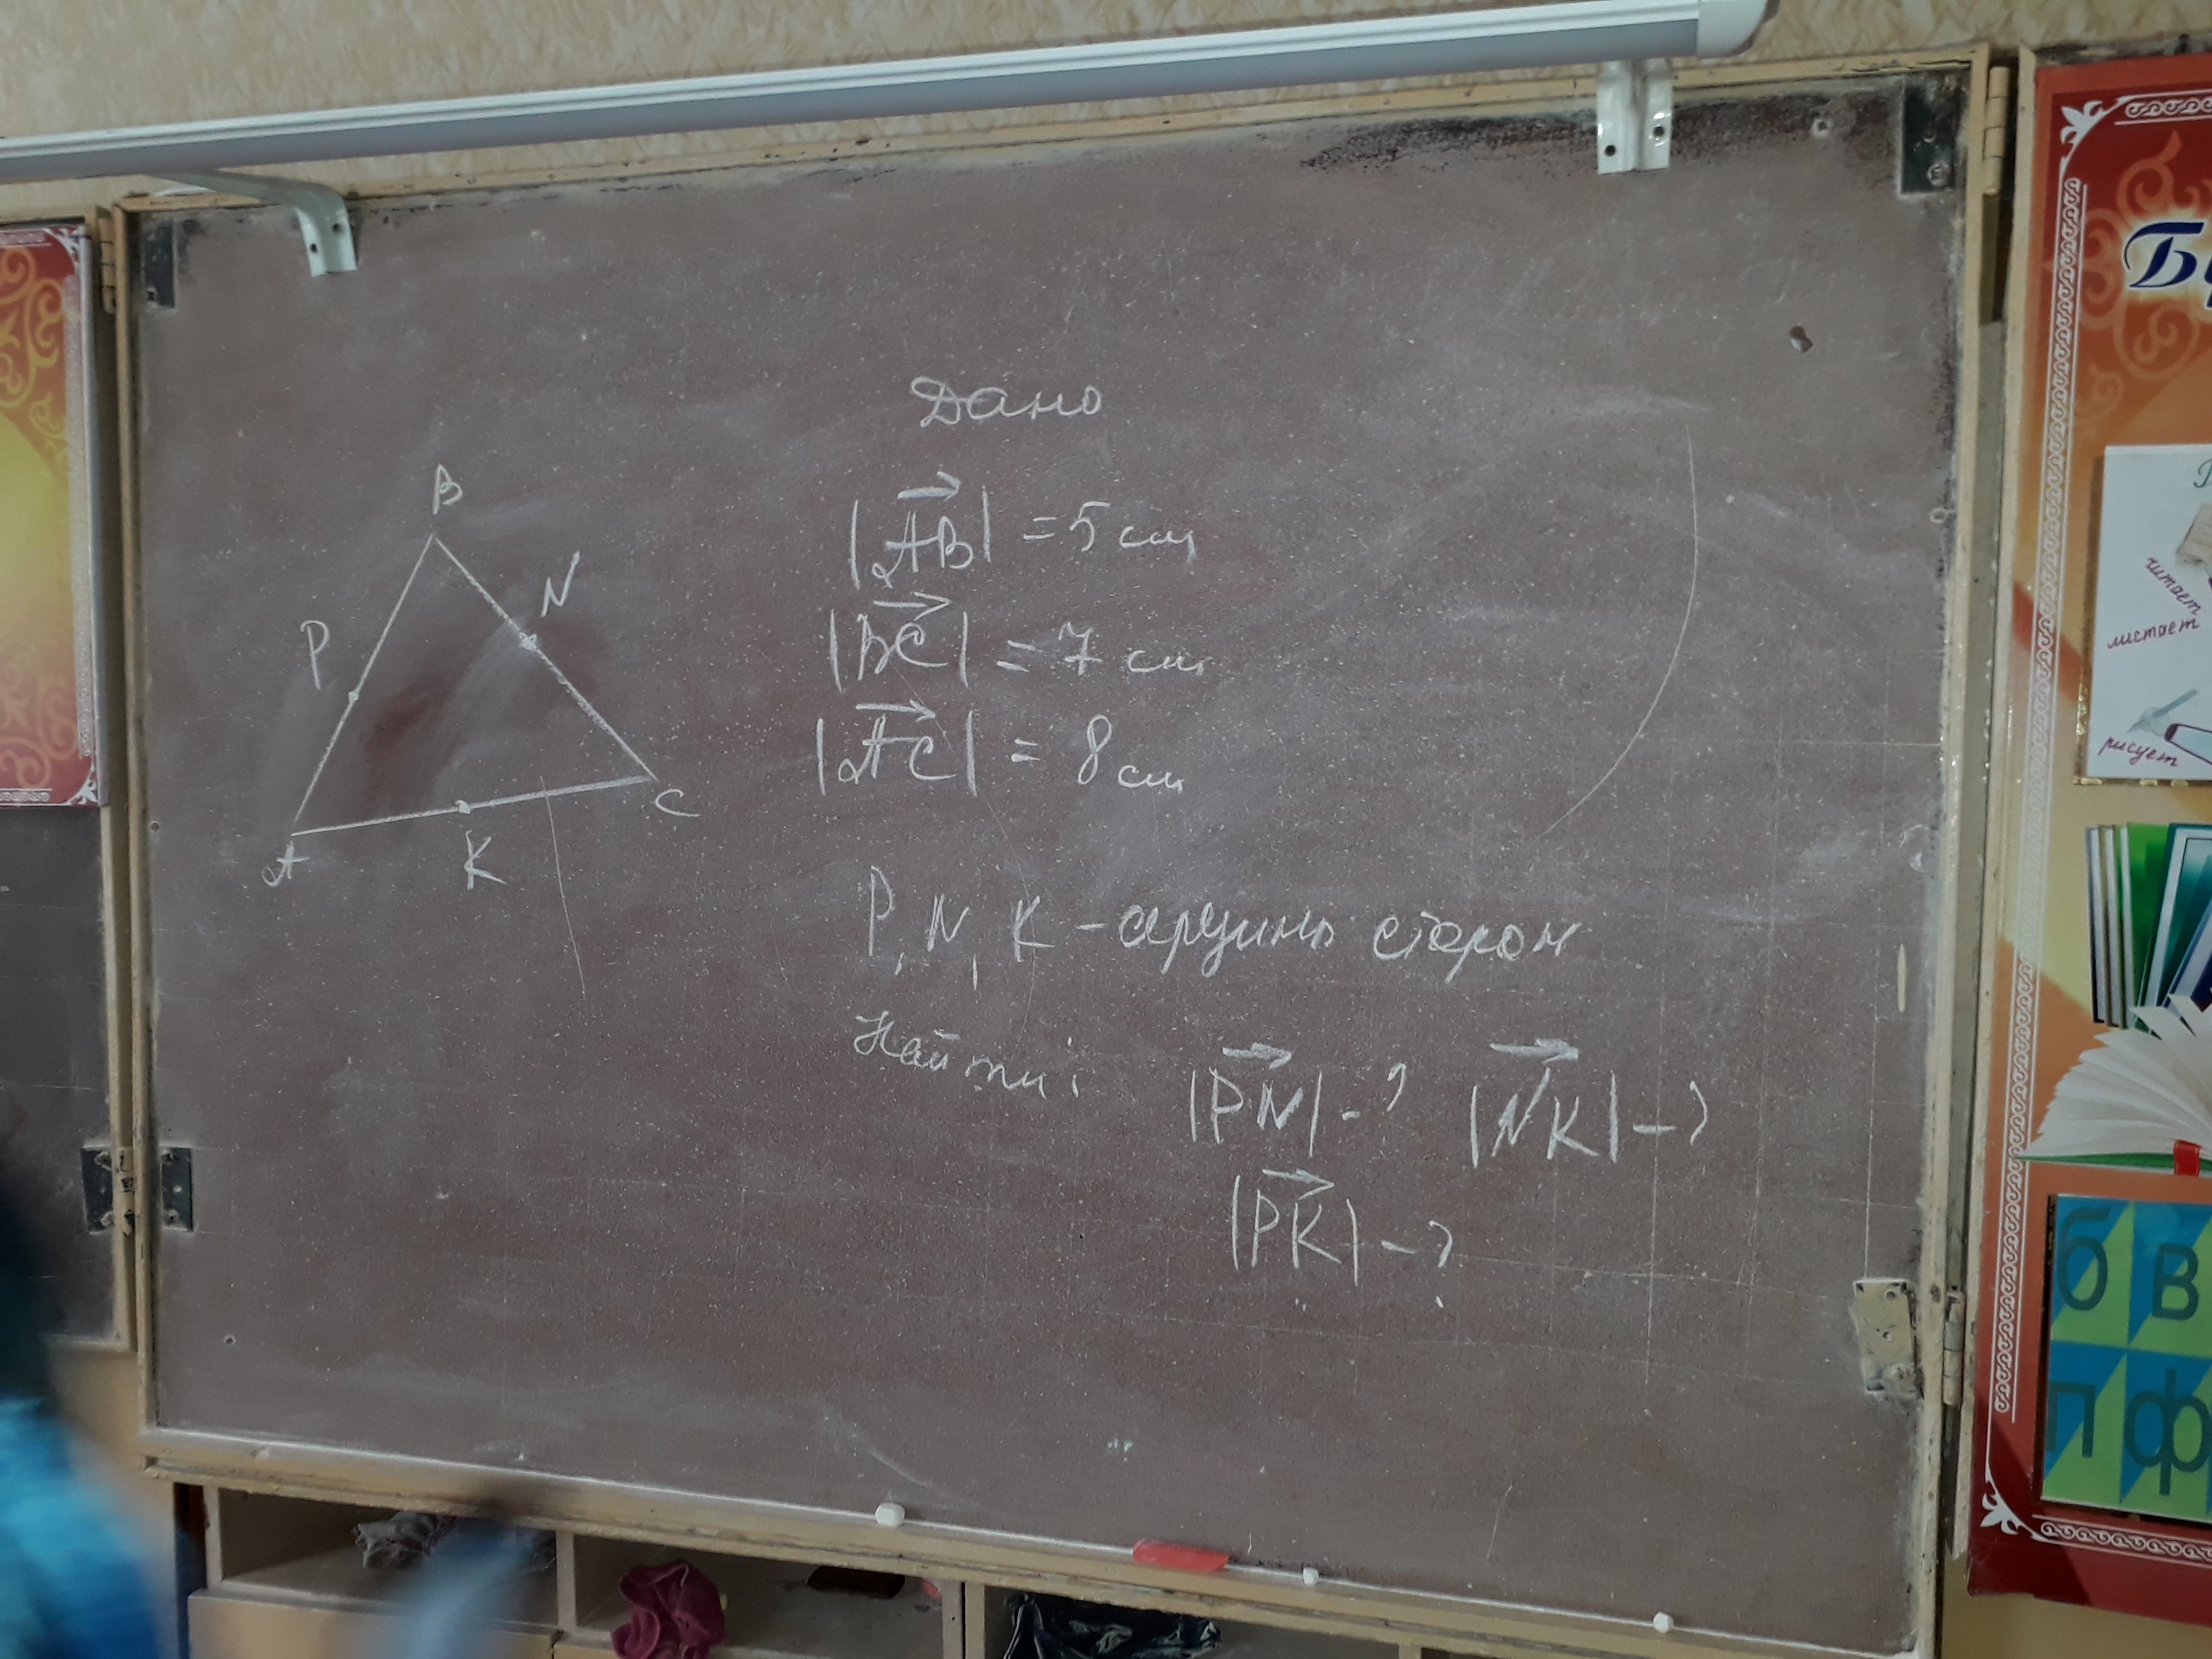 Дано
B
N
P
A
K
C
|AB| = 5 см
|BC| = 7 см
|AC| = 8 см
P, N, K - середины сторон
Найти:
|PN| - ? |NK| - ?
|PK| - ?
читает
листает
рисует
б в
п ф